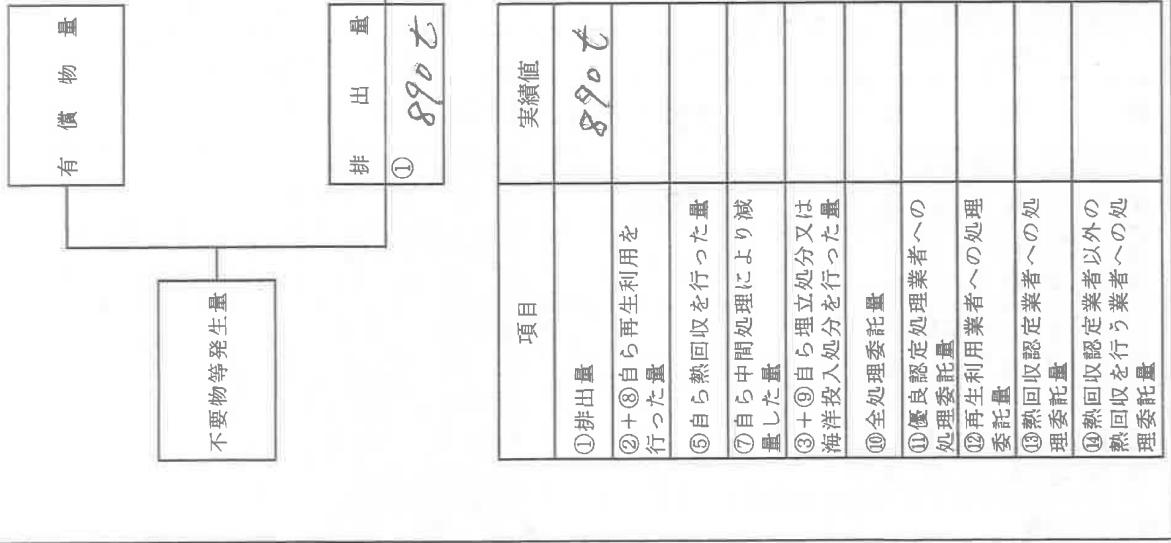 有償物量
不要物等発生量
排出量
① 890 t
項目
実績値
①排出量
890 t
②＋⑧自ら再生利用を
行った量
⑤自ら熱回収を行った量
⑦自ら中間処理により減
量した量
③＋⑨自ら埋立処分又は
海洋投入処分を行った量
⑩全処理委託量
⑪優良認定処理業者への
処理委託量
⑫再生利用業者への処理
委託量
⑬熱回収認定業者への処
理委託量
⑭熱回収認定業者以外の
熱回収を行う業者への処
理委託量